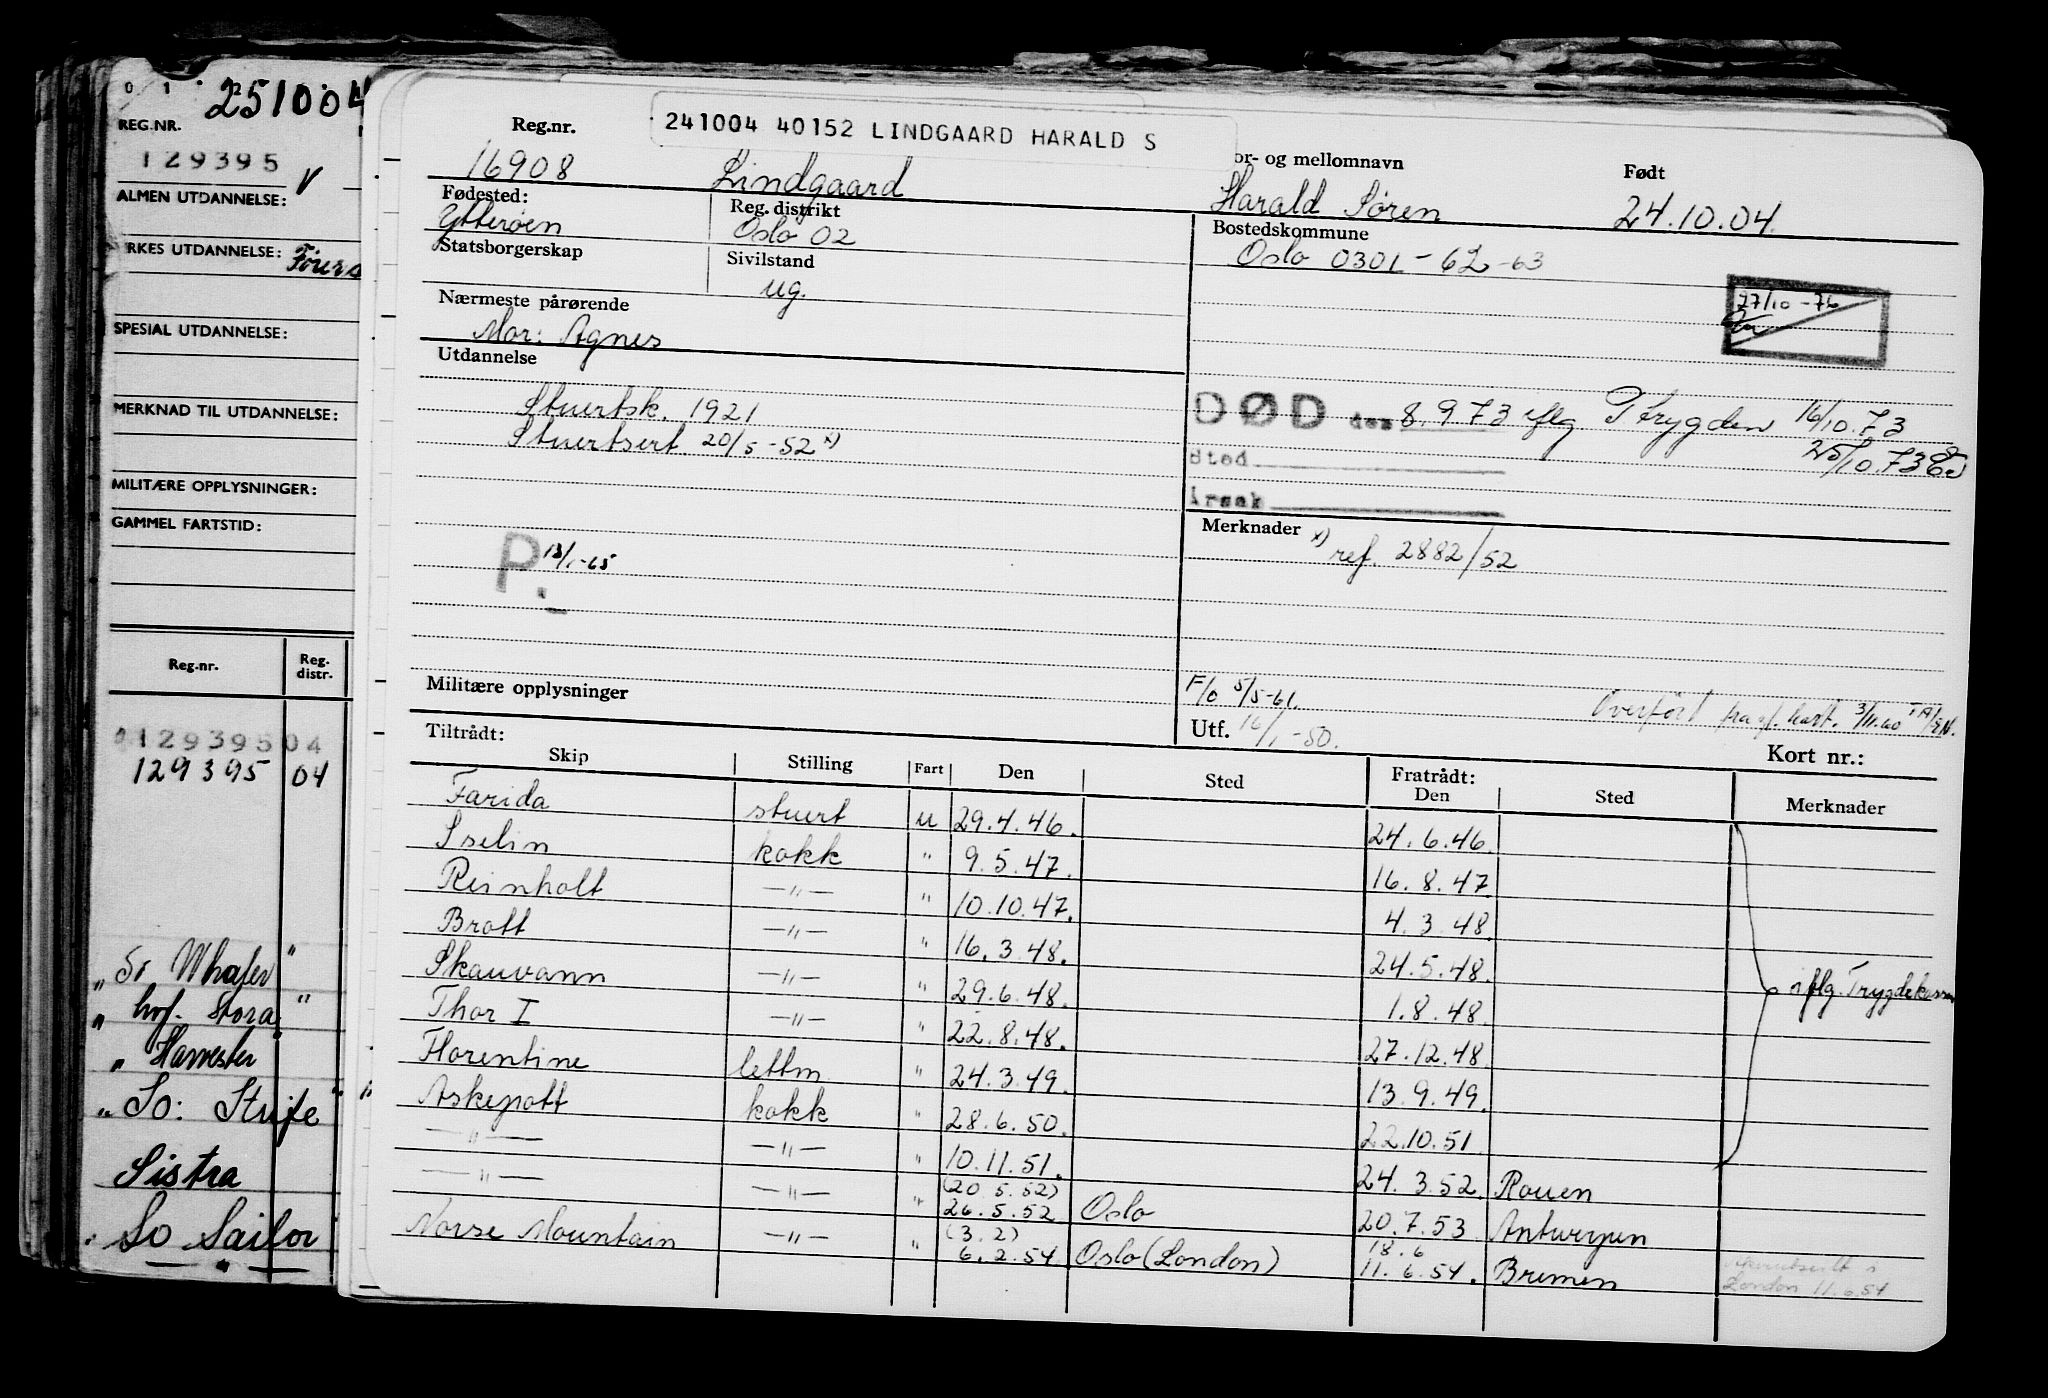 0 1 2
251004
REG.NR.
129395 V
ALMEN UTDANNELSE:
RKES UTDANNELSE:
SPESIAL UTDANNELSE:
MERKNAD TIL UTDANNELSE:
MILITÆRE OPPLYSNINGER:
GAMMEL FARTSTID:
Reg.nr. Reg. distr.
129395 04
129395 04
" So Whaler "
" hvf. Stora "
" Harvester "
" So: Strife "
Sistra
So Sailor
241004 40152 LINDGAARD HARALD S
Reg.nr. or- og mellomnavn Født
16908 Lindgaard Harald Søren 24.10.04.
Fødested: Reg. distrikt Bostedskommune
Ytterøen Oslo 02 Oslo 0301-62-63
Statsborgerskap Sivilstand
ug.
27/10-76
Nærmeste pårørende
Mor: Agnes
Utdannelse
Stuertsk. 1921
Stuertsert 20/5-52 x)
DØD den 8.9.73 iflg Trygden 16/10.73
25/10.73
Sted
Årsak
Merknader
x) ref. 2882/52
P. 13/1-65
Militære opplysninger
F/o 5/5-61.
Overført fra gl. kort. 3/11.60
Utf. 16/1-50.
Kort nr.:
Tiltrådt: Fratrådt:
Skip Stilling Fart Den Sted Den Sted Merknader
Farida stuert u 29.4.46. 24.6.46.
Iselin kokk " 9.5.47. 16.8.47.
Reinholt —"— " 10.10.47. 4.3.48.
Brott —"— " 16.3.48. 24.5.48.
Skauvann —"— " 29.6.48. 1.8.48. iflg. Trygdekassen
Thor I —"— " 22.8.48. 27.12.48.
Florentine lettm. " 24.3.49. 13.9.49.
Askepott kokk " 28.6.50. 22.10.51.
—"— —"— " 10.11.51. 24.3.52. Rouen
(20.5.52)
—"— —"— " 26.5.52 Oslo 20.7.53 Antwerpen
(3.2) 18.6
Norse Mountain —"— " 6.2.54 Oslo (London) 11.6.54. Bremen
London 11.6.54